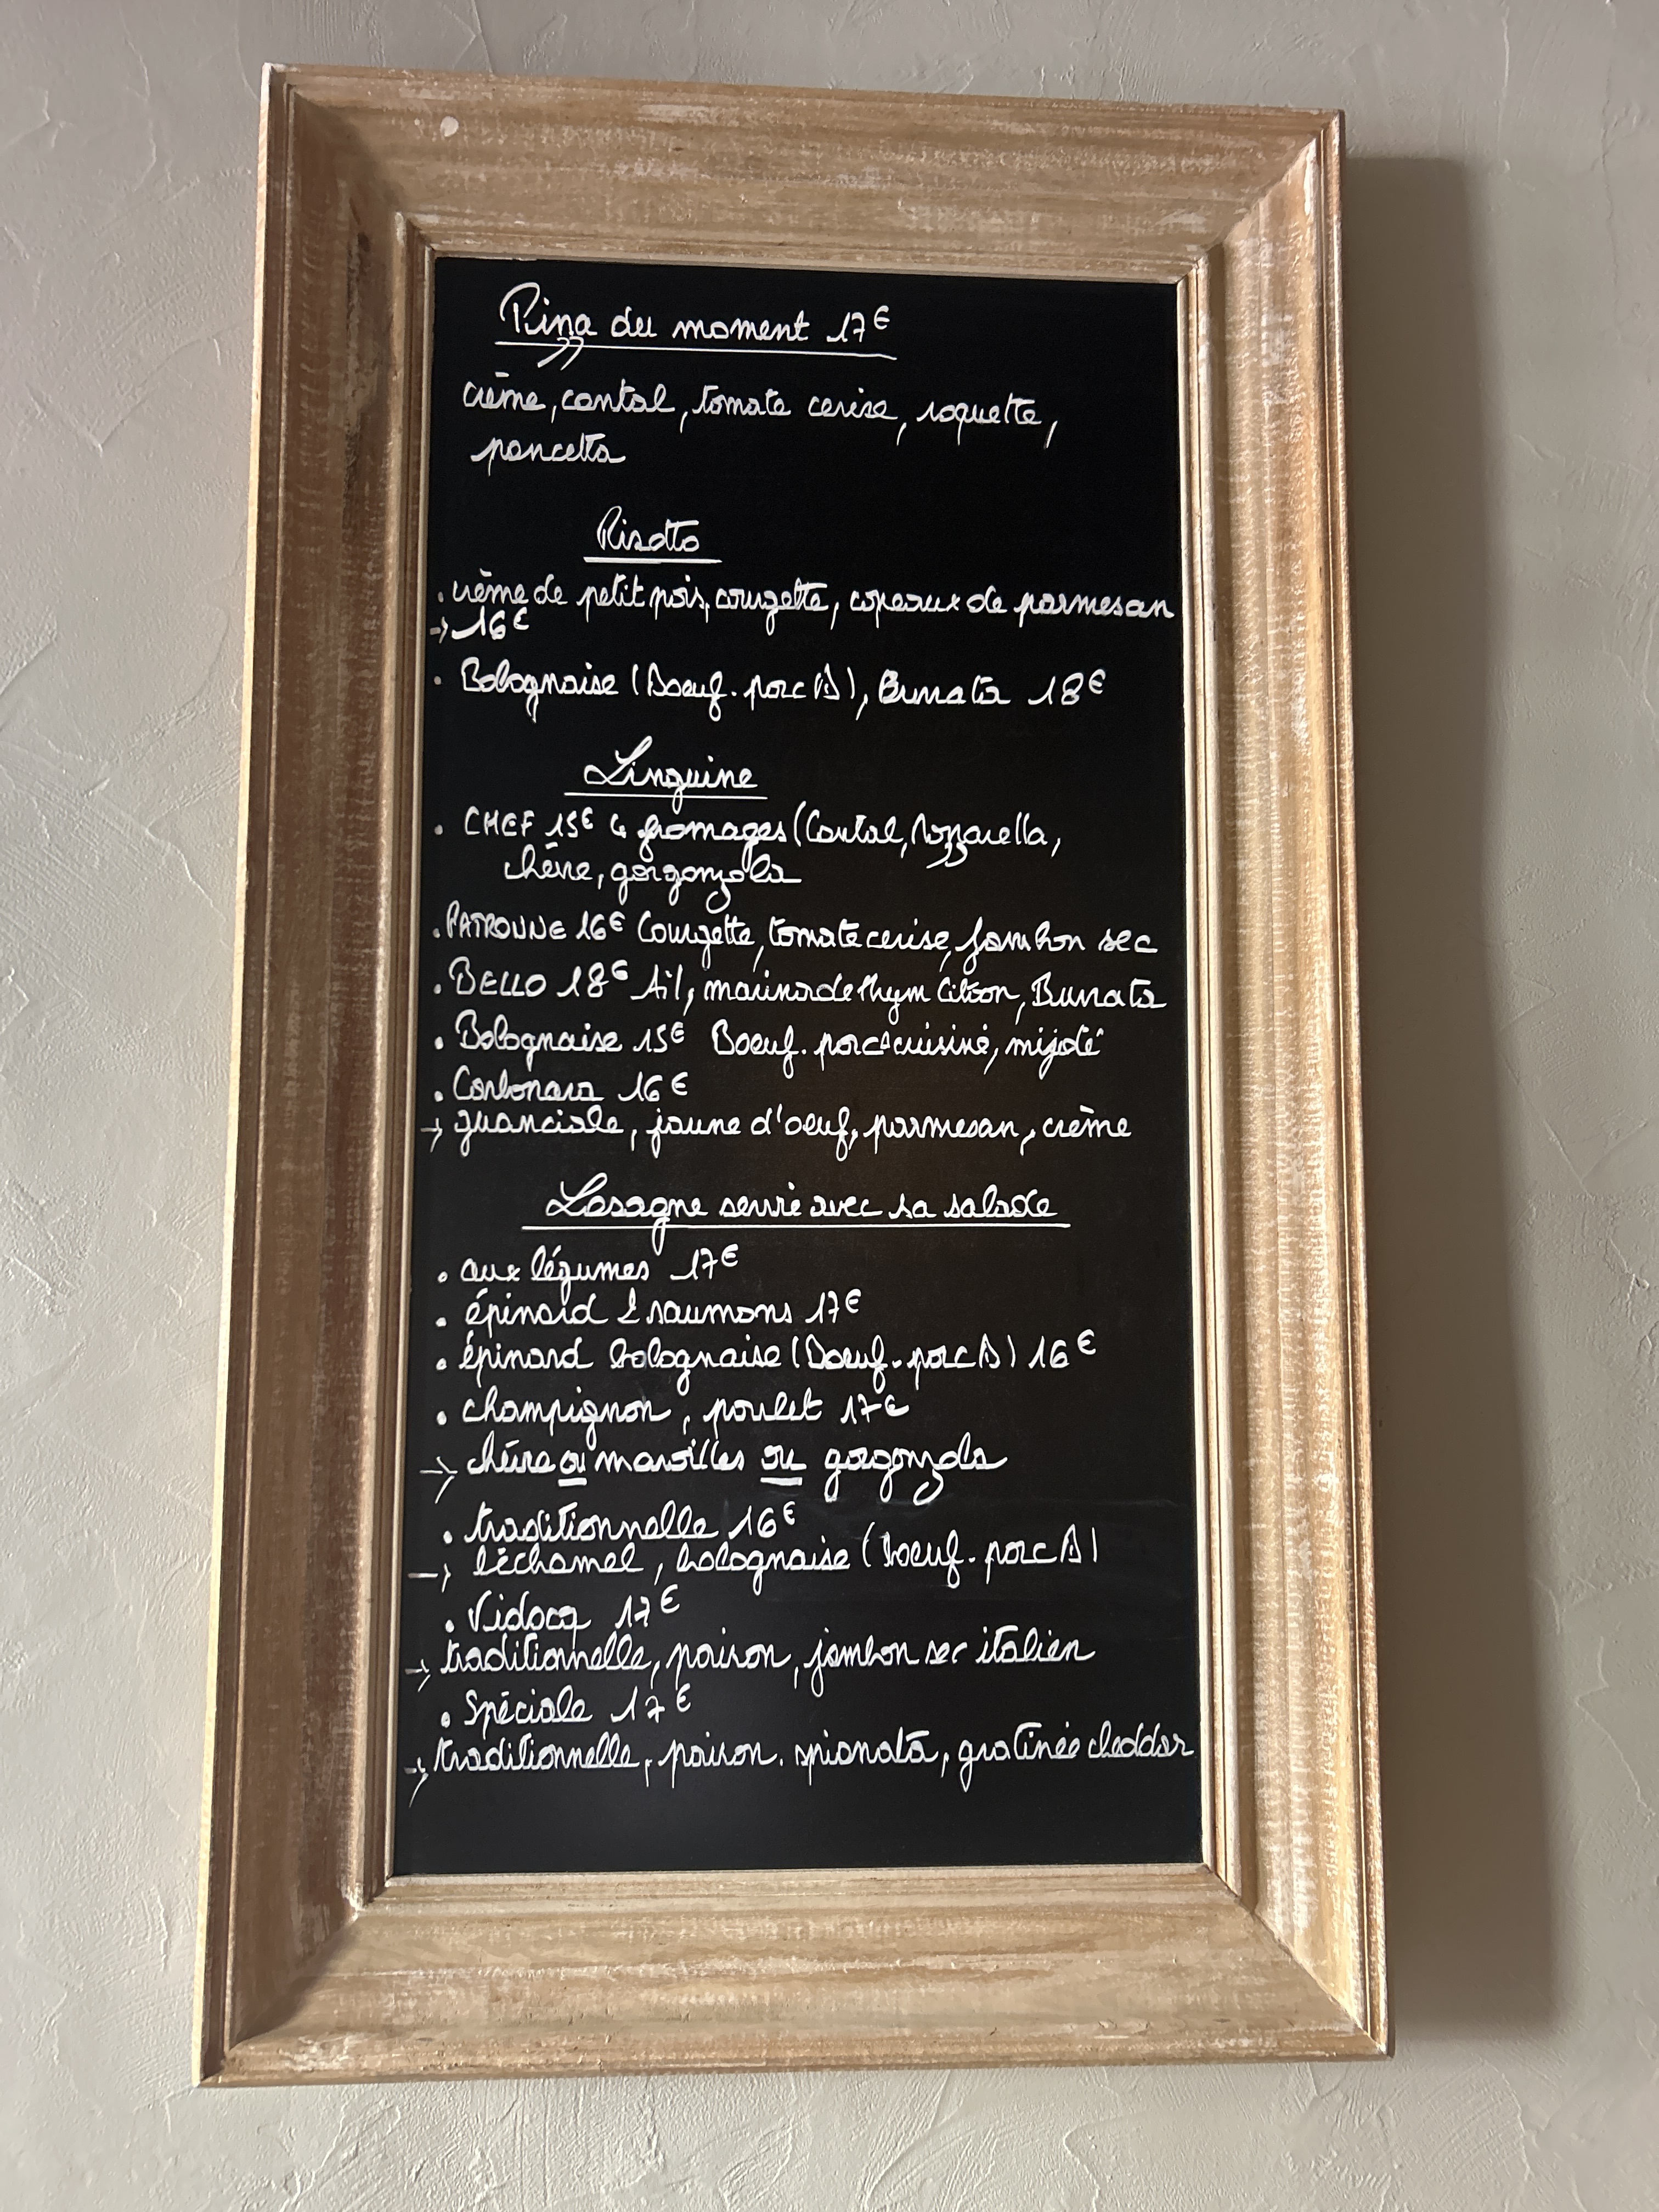 Pizza du moment 17€
crème, cantal, tomate cerise, roquette,
pancetta
Risotto
. crème de petit pois, courgette, copeaux de parmesan
→ 16€
. Bolognaise (Boeuf. porc), Burrata 18€
Linguine
. CHEF 15€ 4 fromages (Cantal, Mozzarella,
chèvre, gorgonzola
. PATRONNE 16€ Courgette, tomate cerise, jambon sec
. BELLO 18€ Ail, marinade thym citron, Burrata
. Bolognaise 15€ Boeuf. porc cuisiné, mijoté
. Carbonara 16€
→ guanciale, jaune d'oeuf, parmesan, crème
Lasagne servie avec sa salade
. aux légumes 17€
. épinard & saumons 17€
. épinard bolognaise (Boeuf. porc) 16€
. champignon, poulet 17€
→ chèvre ou maroilles ou gorgonzola
. traditionnelle 16€
→ béchamel, bolognaise (boeuf. porc)
. Vidocq 17€
→ traditionnelle, poivron, jambon sec italien
. Spéciale 17€
→ traditionnelle, poivron. spianata, gratinée cheddar